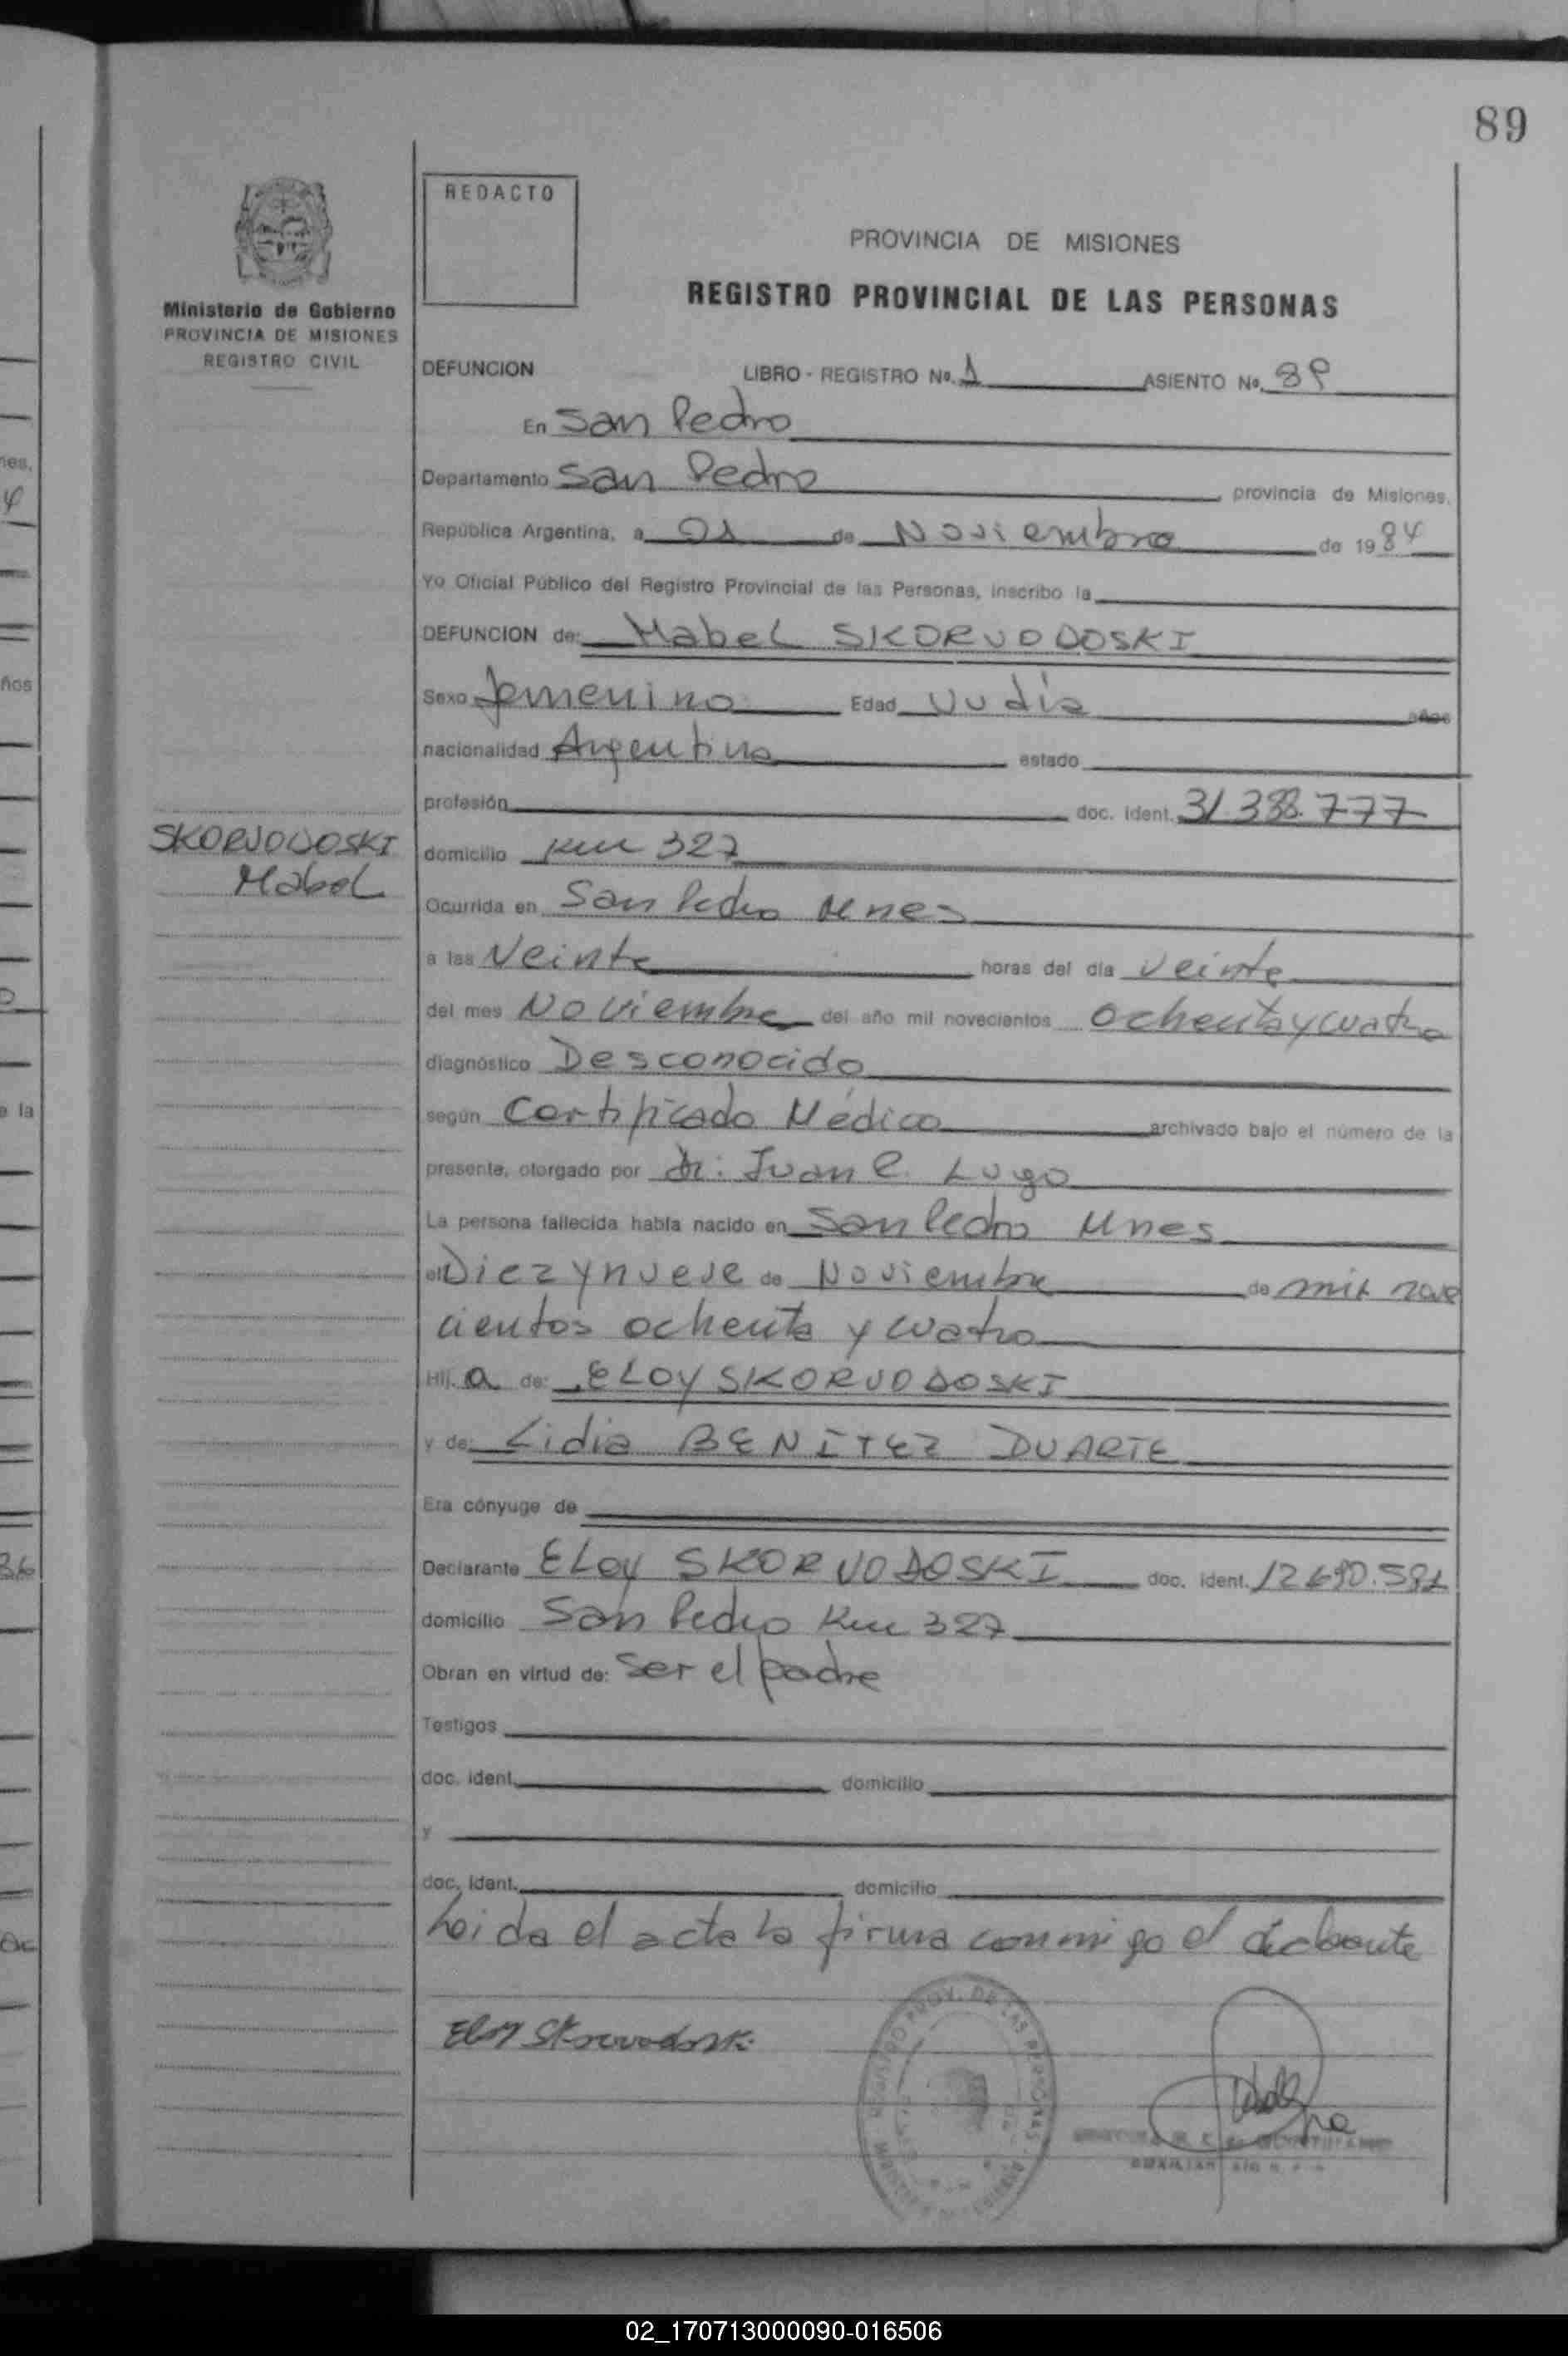 89
REDACTO
PROVINCIA DE MISIONES
REGISTRO PROVINCIAL DE LAS PERSONAS
Ministerio de Gobierno
PROVINCIA DE MISIONES
REGISTRO CIVIL
DEFUNCION LIBRO - REGISTRO No. 1 ASIENTO No. 89
En San Pedro
Departamento San Pedro provincia de Misiones.
República Argentina, a 21 de Noviembre de 1984
Yo Oficial Público del Registro Provincial de las Personas, inscribo la
DEFUNCION de: Mabel SKORVODOSKI
Sexo femenino Edad Un dia años
nacionalidad Argentina estado
profesión doc. ident. 31.338.777
SKORVODOSKI
Mabel
domicilio Km 327
Ocurrida en San Pedro Mnes
a las Veinte horas del día veinte
del mes Noviembre del año mil novecientos ochenta y cuatro
diagnóstico Desconocido
según Certificado Médico archivado bajo el número de la
presente, otorgado por dr: Juan C. Lugo
La persona fallecida había nacido en San Pedro Mnes
el Diez y nueve de Noviembre de mil nove
cientos ochenta y cuatro
Hij a de: ELOY SKORVODOSKI
y de: Lidia BENITEZ DUARTE
Era cónyuge de
Declarante ELOY SKORVODOSKI doc. ident. 12.690.581
domicilio San Pedro Km 327
Obran en virtud de: Ser el padre
Testigos
doc. ident. domicilio
y
doc. ident. domicilio
Leida el acta la firma conmigo el declarante
Eloy Skorvodoski
REGISTRO PROV. DE LAS PERSONAS
02_170713000090-016506